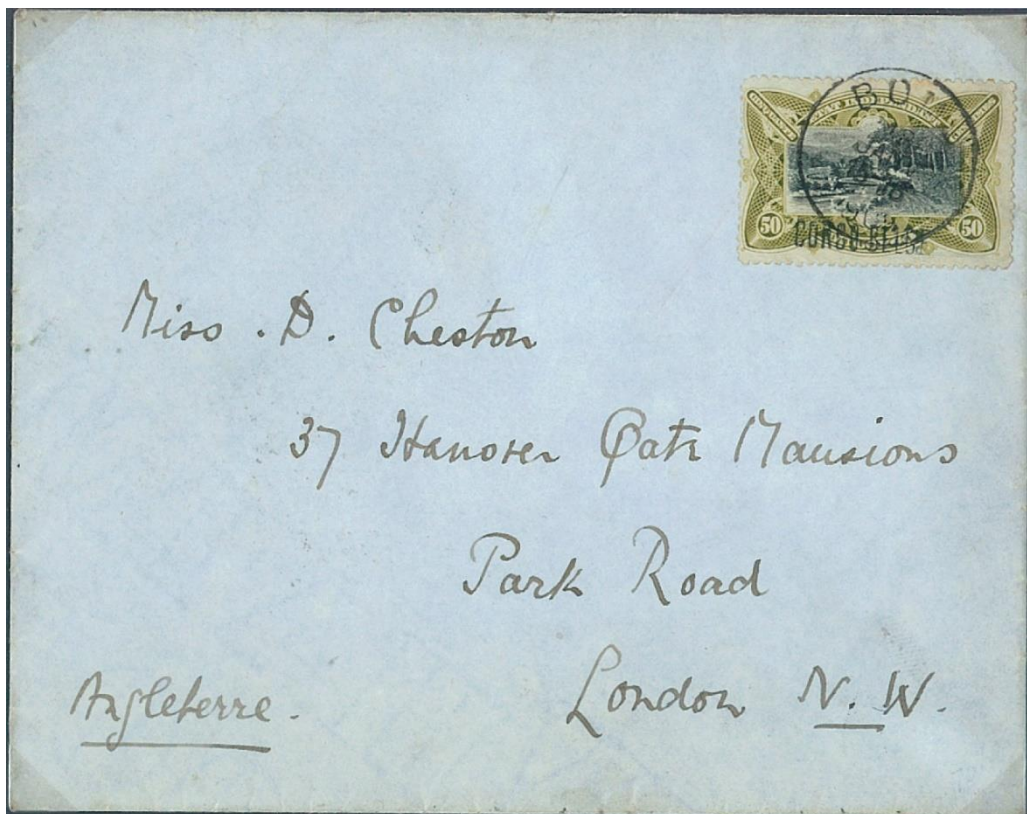 BO
50 CONGO BELGE 50
Miss . D. Cheston
37 Hanover Gate Mansions
Park Road
London N. W.
Angleterre.